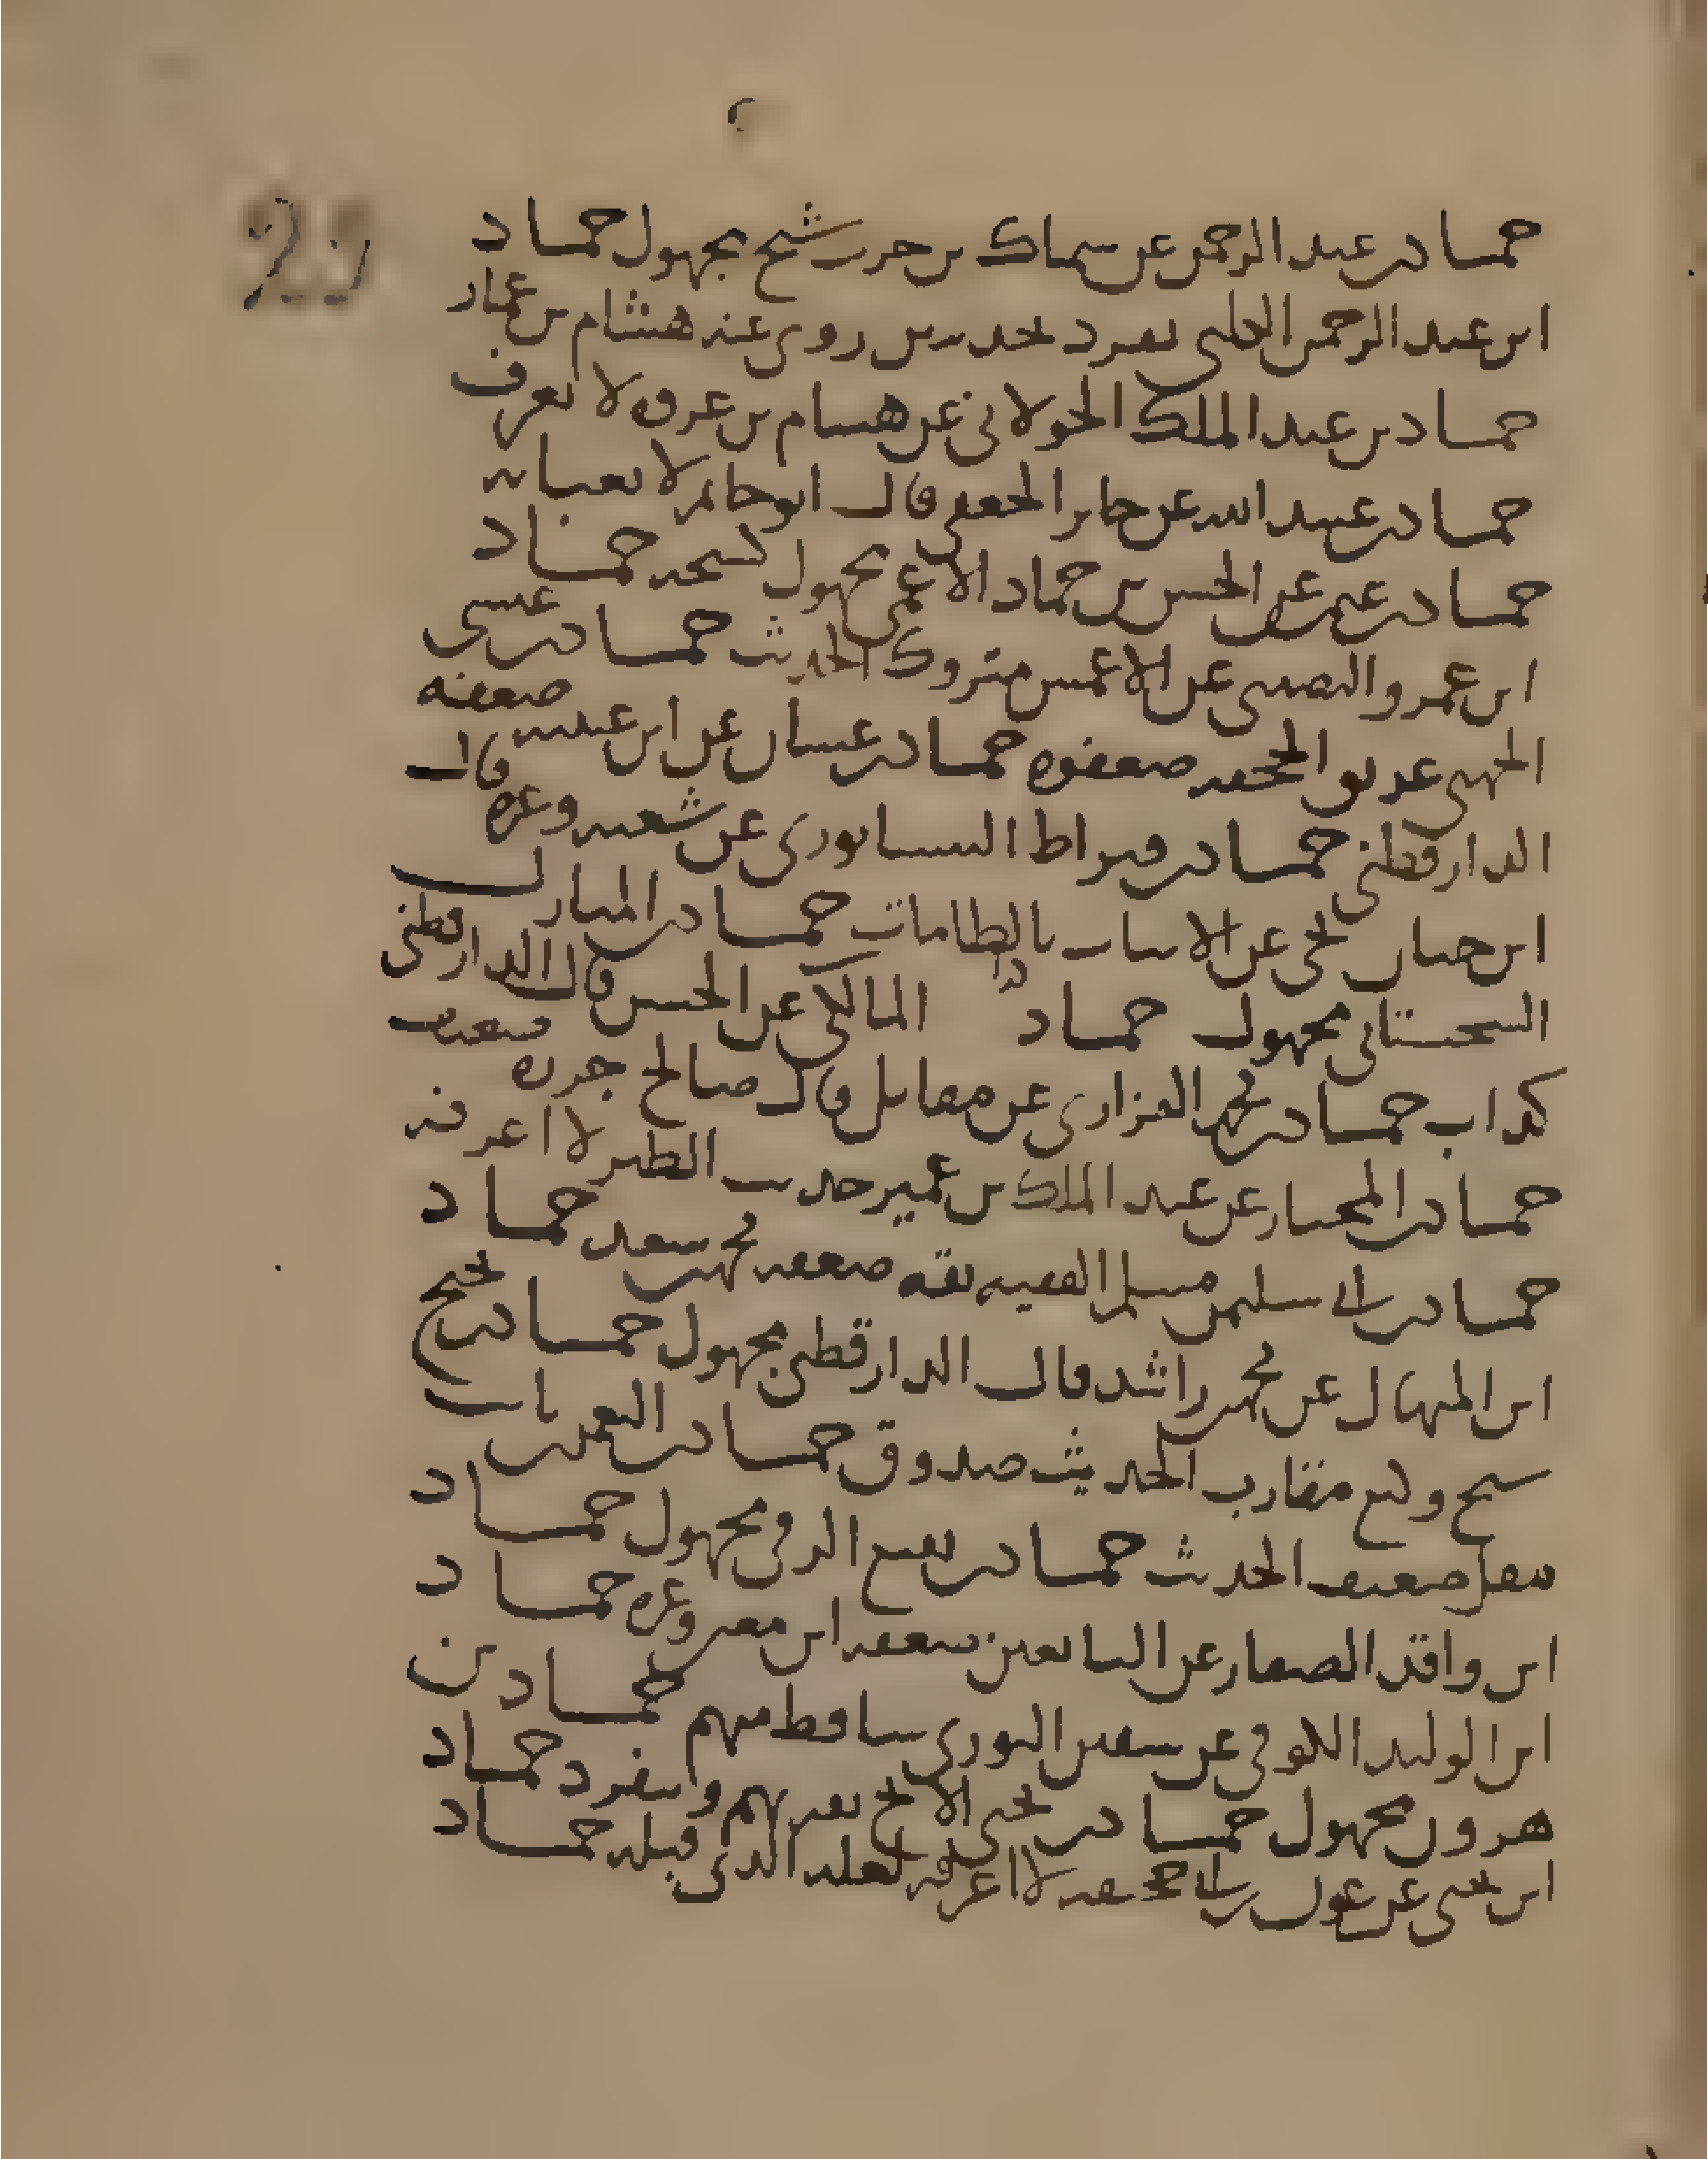 حماد بن عبد الرحمن عن سماك بن حرب شيخ مجهول حماد
ابن عبد الرحمن الكلبي تفرد بحديثين روى عنه هشام بن عمار
حماد بن عبد الملك الخولاني عن هشام بن عروة لا يعرف
حماد بن عبيد الله عن جابر الجعفي قال ابو حاتم لا يعبأ به
حماد بن عمر عن الحسن بن حماد الاعمى مجهول كشيخه حماد
ابن عمرو النصيبي عن الاعمش متروك الحديث حماد بن عيسى
الجهني غريق الجحفة ضعفوه حماد بن غسان عن ابن عيينة ضعفه
الدارقطني حماد بن قيراط النيسابوري عن شعبة وغيره قال
ابن حبان يجي عن الاثبات بالطامات حماد بن المبارك
السجستاني مجهول حماد المالكي عن الحسن قال الدارقطني
كذاب حماد بن محمد الفزاري عن مقاتل قال صالح جزرة ضعيف
حماد بن المختار عن عبد الملك بن عمير حديث الطير لا اعرفه
حماد بن ابي سليمن مسلم الفقيه ثقة ضعفه محمد بن سعد حماد
ابن المنهال عن محمد بن راشد قال الدارقطني مجهول حماد بن نجيح
شيخ وكيع مقارب الحديث صدوق حماد بن النعمن باب
مقل ضعيف الحديث حماد بن نفيع الرقي مجهول حماد
ابن واقد الصفار عن التابعين ضعفه ابن معين وغيره حماد
ابن الوليد الكوفي عن سفين الثوري ساقط متهم حماد بن
هرون مجهول حماد بن يحيى الابح ثقة يهم وينفرد حماد
ابن يحيى عن عون بن ابي جحيفة لا اعرفه لعله الذي قبله حماد